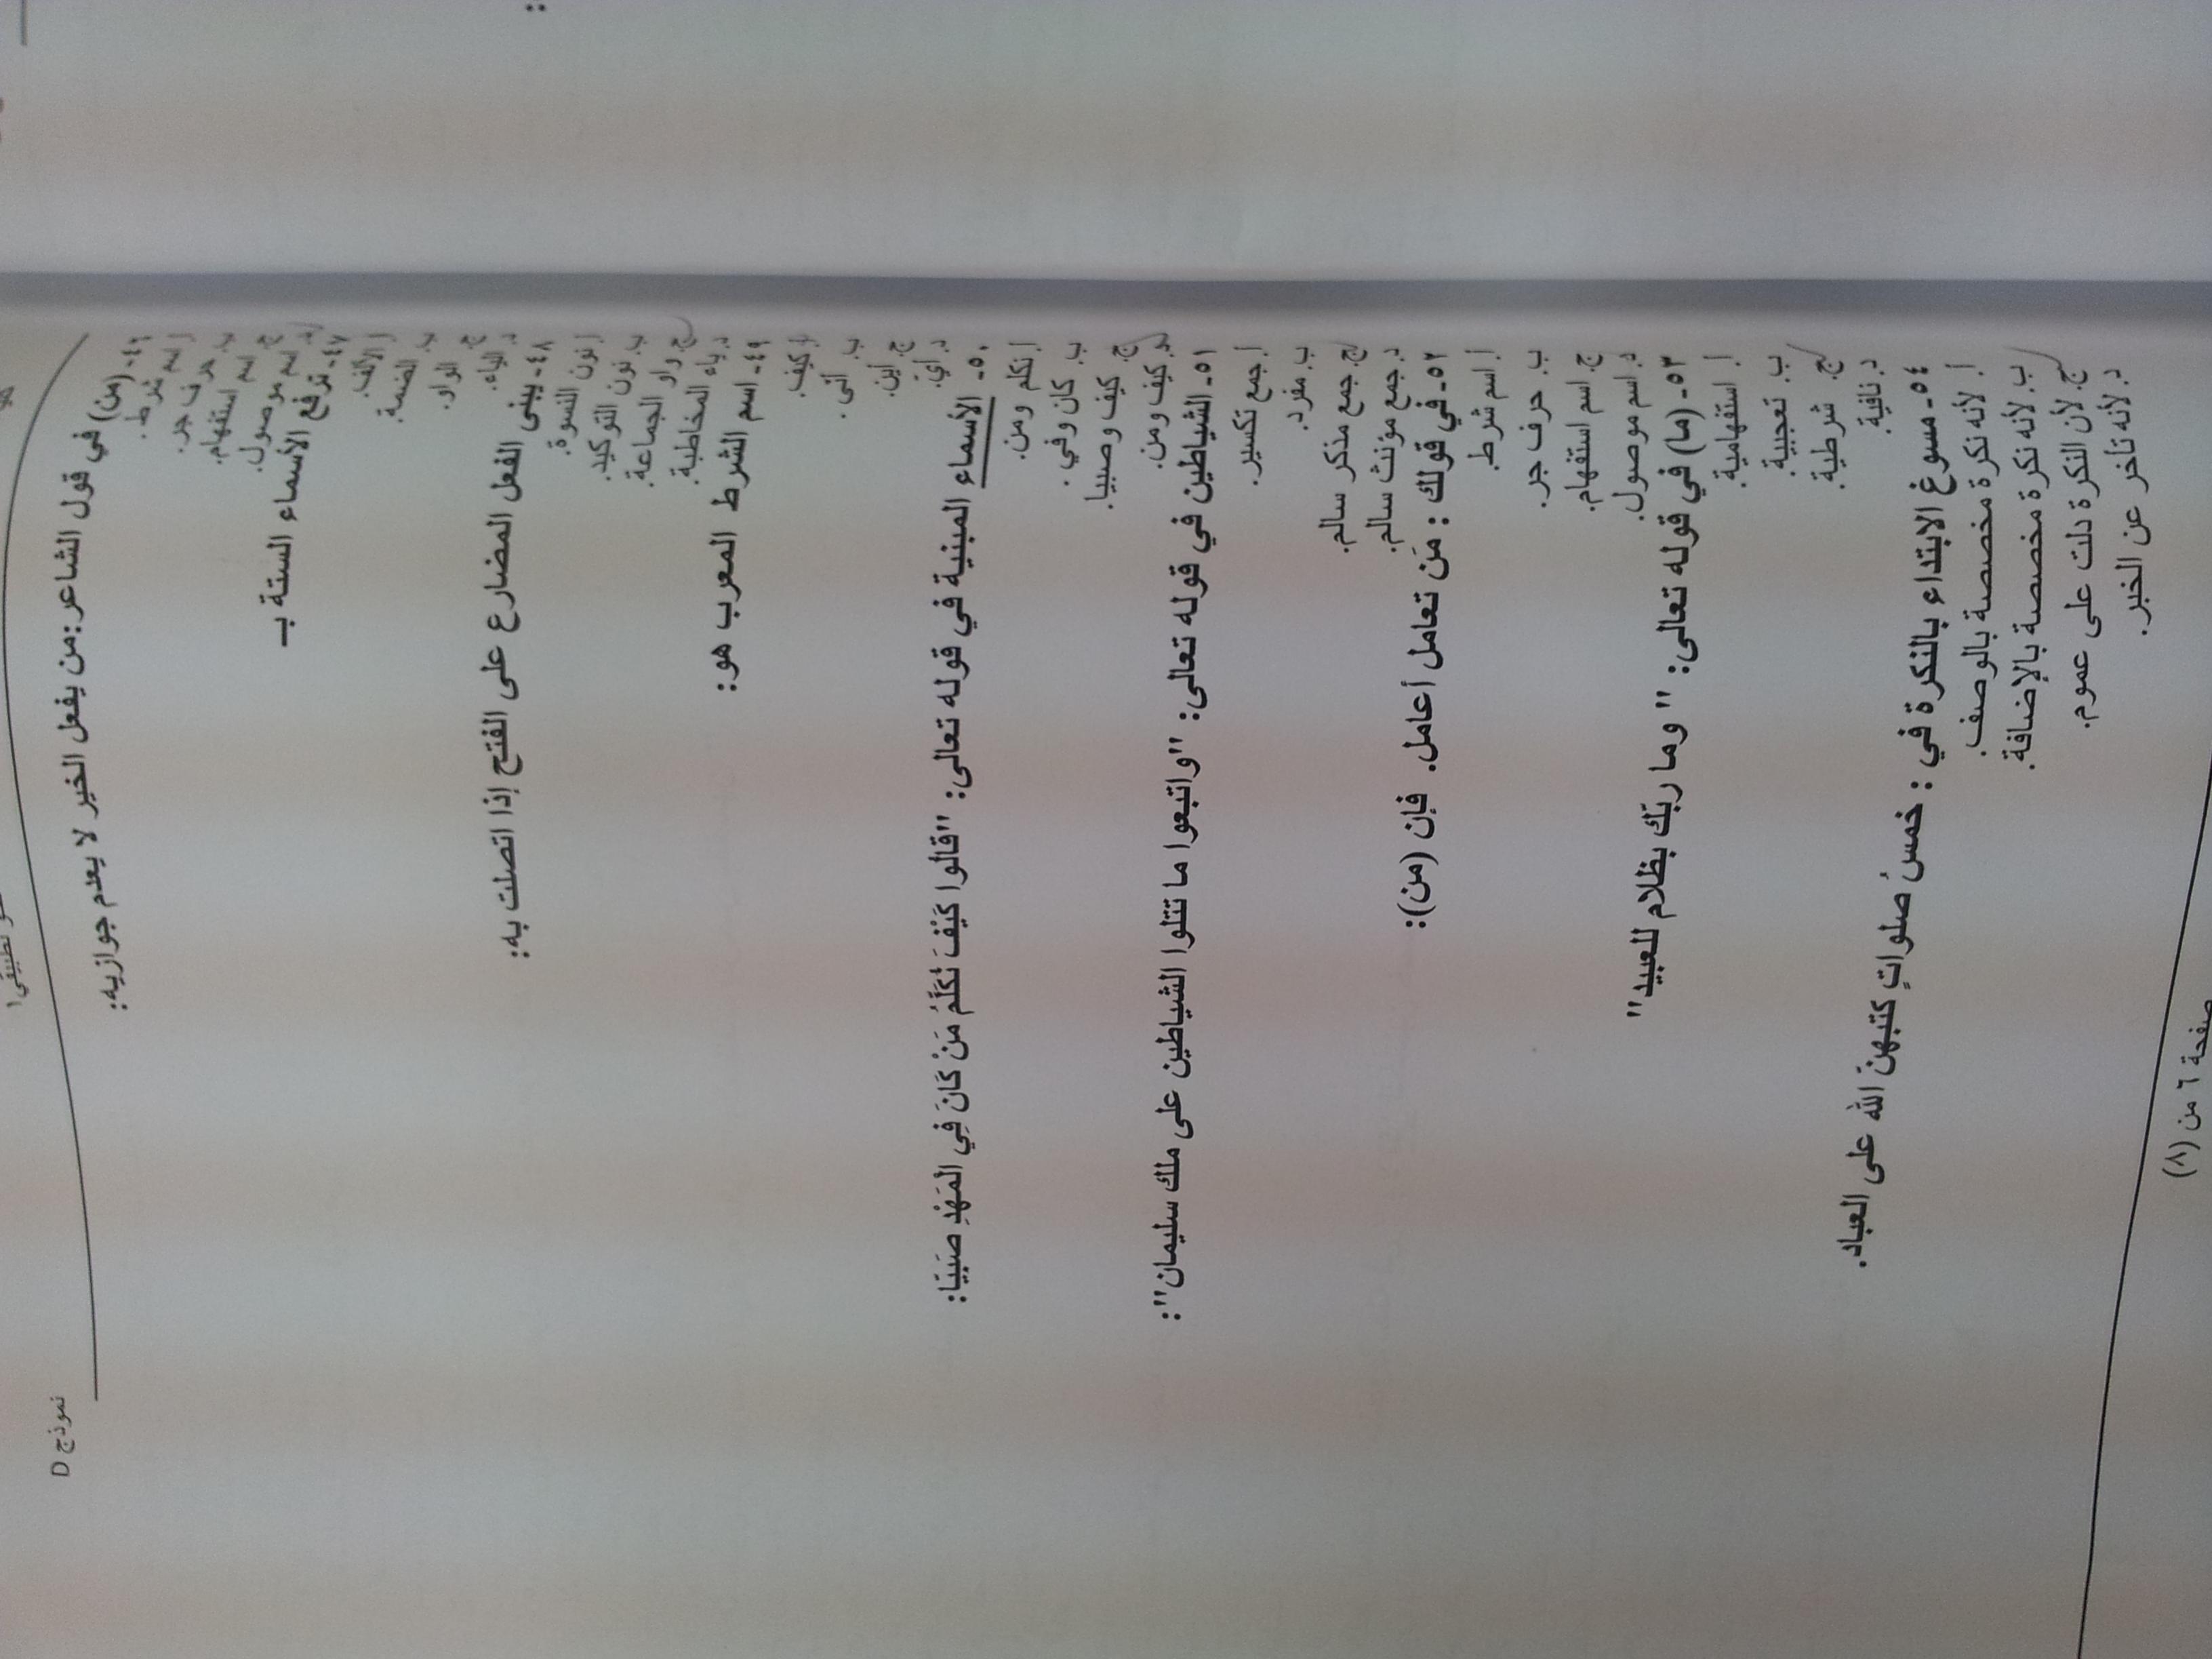 نموذج D
٤٦- (من) في قول الشاعر: من يفعل الخير لا يعدم جوازيه:
أ. اسم شرط.
ب. حرف جر.
ج. اسم استفهام.
د. اسم موصول.
٤٧- ترفع الأسماء الستة بـ
أ. الألف.
ب. الضمة.
ج. الواو.
د. الياء.
٤٨- يبنى الفعل المضارع على الفتح إذا اتصلت به:
أ. نون النسوة.
ب. نون التوكيد.
ج. واو الجماعة.
د. ياء المخاطبة.
٤٩- اسم الشرط المعرب هو:
أ. كيف.
ب. أنى.
ج. أين.
د. أي.
٥٠- الأسماء المبنية في قوله تعالى: "قالوا كَيْفَ نُكَلِّمُ مَنْ كَانَ فِي المَهْدِ صَبِيًا:
أ. نكلم ومن.
ب. كان وفي.
ج. كيف وصبيا.
د. كيف ومن.
٥١- الشياطين في قوله تعالى: "واتبعوا ما تتلوا الشياطين على ملك سليمان":
أ. جمع تكسير.
ب. مفرد.
ج. جمع مذكر سالم.
د. جمع مؤنث سالم.
٥٢- في قولك: مَن تعامل أعامل. فإن (من):
أ. اسم شرط.
ب. حرف جر.
ج. اسم استفهام.
د. اسم موصول.
٥٣- (ما) في قوله تعالى: "وما ربّك بظلام للعبيد"
أ. استفهامية.
ب. تعجبية.
ج. شرطية.
د. نافية.
٥٤- مسوغ الابتداء بالنكرة في: خمسُ صلواتٍ كتبهنّ الله على العباد.
أ. لأنه نكرة مخصصة بالوصف.
ب. لأنه نكرة مخصصة بالإضافة.
ج. لأن النكرة دلت على عموم.
د. لأنه تأخر عن الخبر.
صفحة ٦ من (٨)